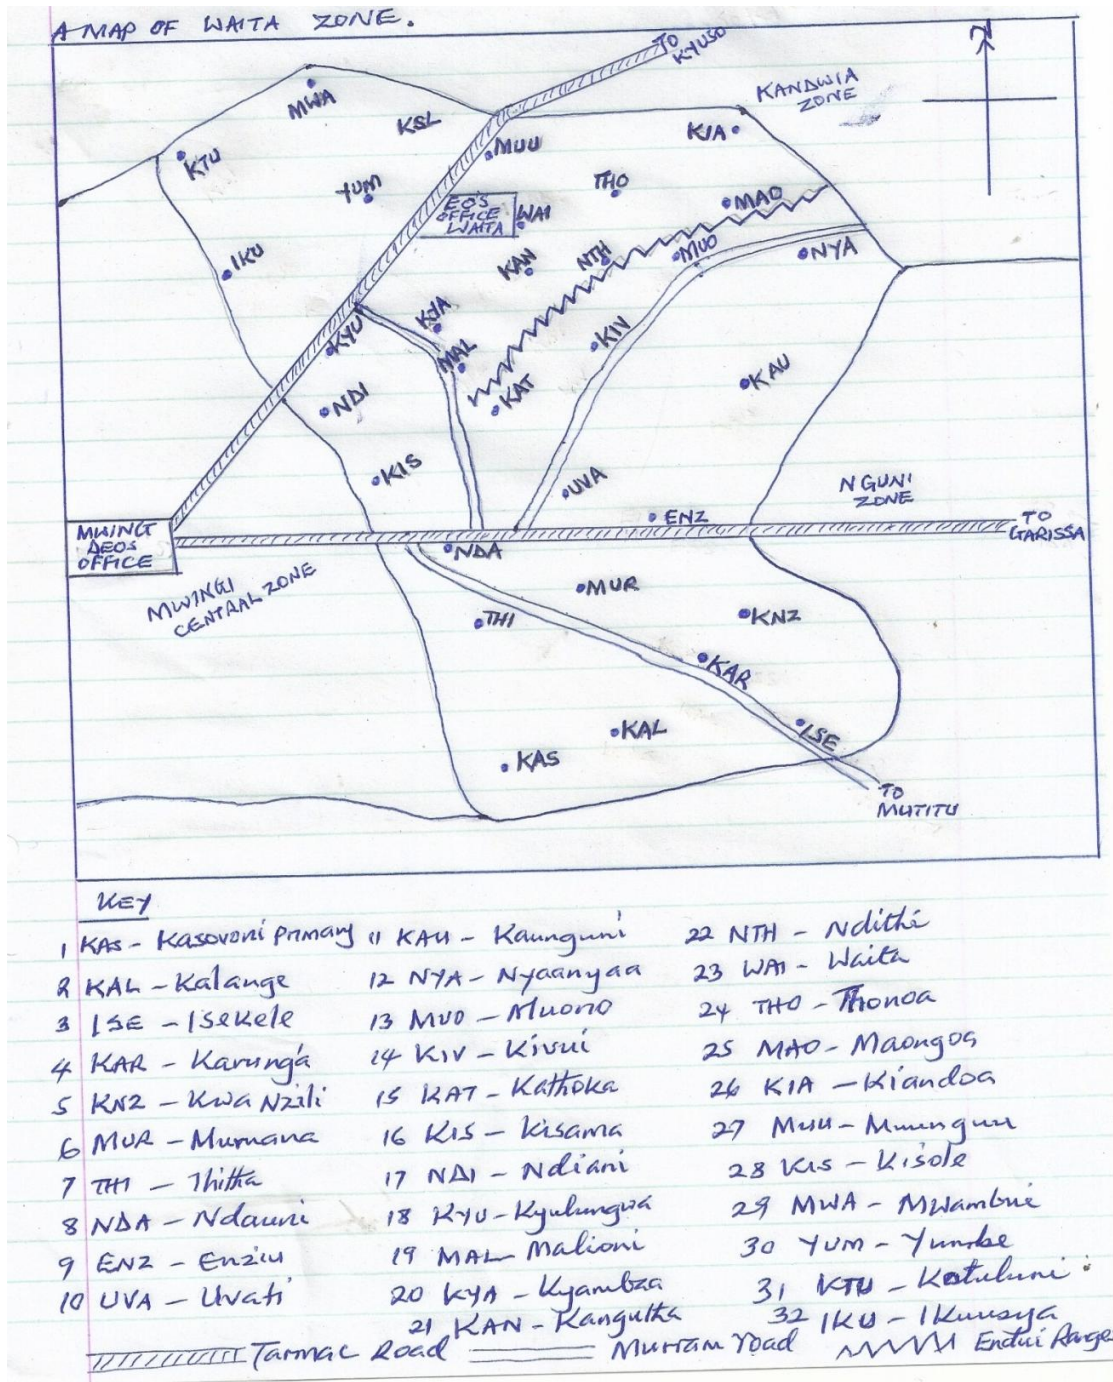 A MAP OF WAITA ZONE.
TO
KYUSO
N
KANDWIA
ZONE
MWA
KSL
KIA
MUU
KTU
YUM
THO
EO'S
OFFICE
WAITA
WAI
MAO
IKU
KAN
NTH
MUO
NYA
KYA
KYU
KIV
MAL
KAU
NDI
KAT
KIS
UVA
NGUNI
ZONE
ENZ
TO
GARISSA
MWINGI
DEOS
OFFICE
NDA
MWINGI
CENTRAL ZONE
MUR
THI
KNZ
KAR
KAL
ISE
KAS
TO
MUTITU
KEY
1 KAS - Kasovoni primary
2 KAL - Kalange
3 ISE - Isekele
4 KAR - Karung'a
5 KNZ - Kwa Nzili
6 MUR - Mumana
7 THI - Thitha
8 NDA - Ndauni
9 ENZ - Enziu
10 UVA - Uvati
11 KAU - Kaunguni
12 NYA - Nyaanyaa
13 MUO - Muono
14 KIV - Kivui
15 KAT - Kathoka
16 KIS - Kisama
17 NDI - Ndiani
18 KYU - Kyulungwa
19 MAL - Malioni
20 KYA - Kyambaa
21 KAN - Kangutha
22 NTH - Ndithi
23 WAI - Waita
24 THO - Thonoa
25 MAO - Maongoa
26 KIA - Kiandoa
27 MUU - Muunguu
28 KIS - Kisole
29 MWA - Mwambui
30 YUM - Yumbe
31 KTU - Katuluni
32 IKU - Ikuusya
Tarmac Road
Murram road
Endui Range